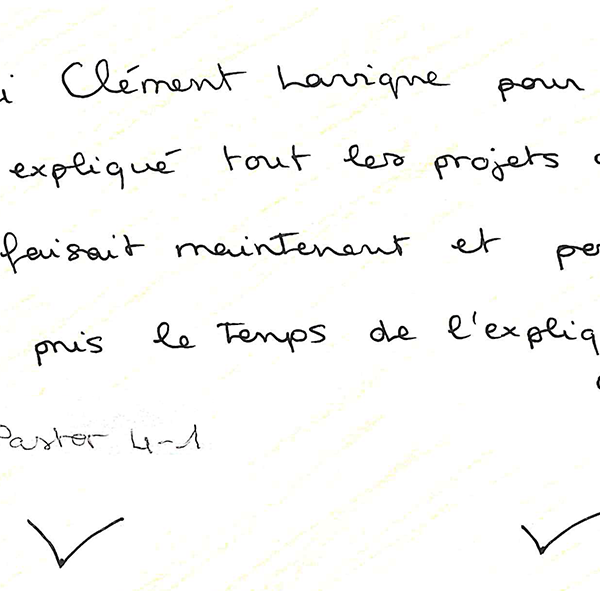 i Clément Lavigne pour
expliqué tout les projets
faisait maintenant et pe
pris le Temps de l'expliq
Pastor 4-1